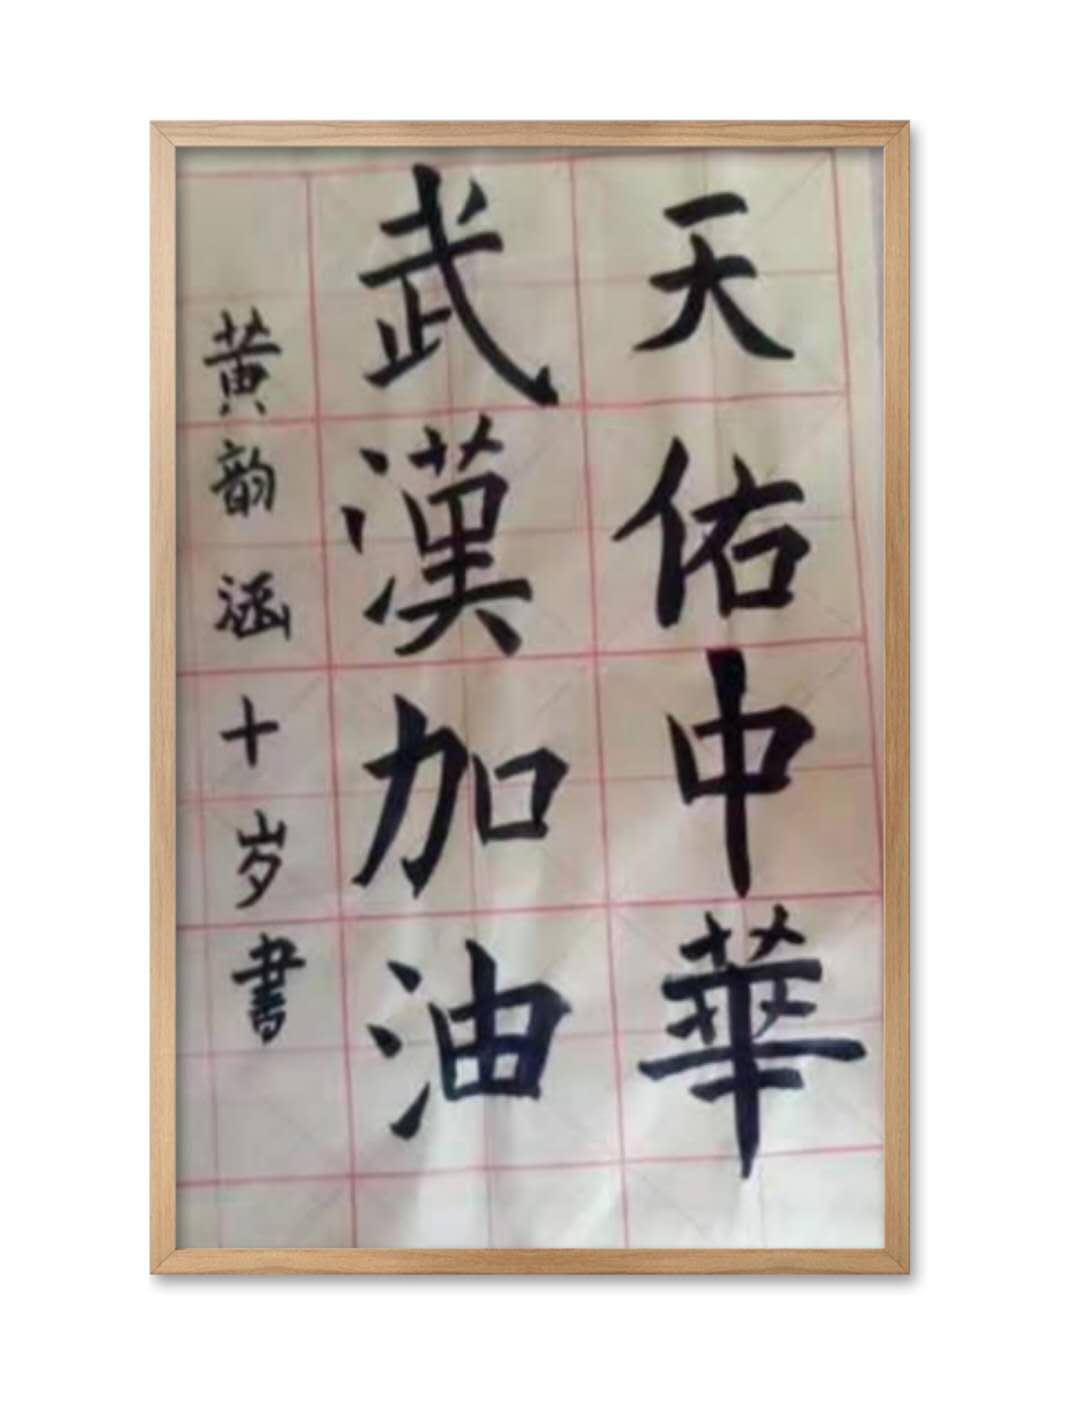 天佑中華
武漢加油
黄韵涵十岁書